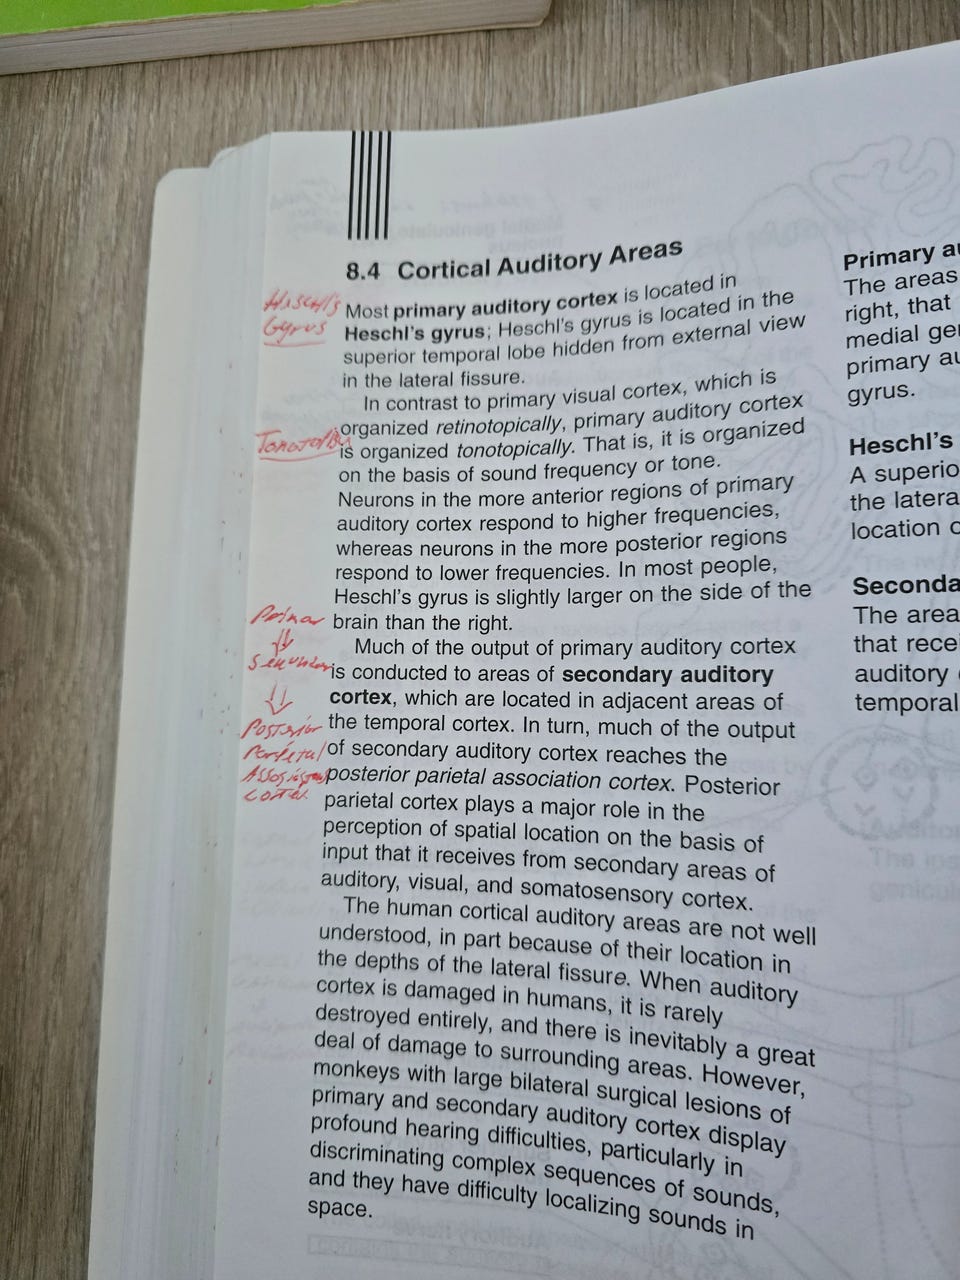 8.4 Cortical Auditory Areas
Heschl's
Gyrus
Most primary auditory cortex is located in
Heschl's gyrus; Heschl's gyrus is located in the
superior temporal lobe hidden from external view
in the lateral fissure.
In contrast to primary visual cortex, which is
organized retinotopically, primary auditory cortex
is organized tonotopically. That is, it is organized
on the basis of sound frequency or tone.
Neurons in the more anterior regions of primary
auditory cortex respond to higher frequencies,
whereas neurons in the more posterior regions
respond to lower frequencies. In most people,
Heschl's gyrus is slightly larger on the side of the
brain than the right.
Much of the output of primary auditory cortex
is conducted to areas of secondary auditory
cortex, which are located in adjacent areas of
the temporal cortex. In turn, much of the output
of secondary auditory cortex reaches the
posterior parietal association cortex. Posterior
parietal cortex plays a major role in the
perception of spatial location on the basis of
input that it receives from secondary areas of
auditory, visual, and somatosensory cortex.
The human cortical auditory areas are not well
understood, in part because of their location in
the depths of the lateral fissure. When auditory
cortex is damaged in humans, it is rarely
destroyed entirely, and there is inevitably a great
deal of damage to surrounding areas. However,
monkeys with large bilateral surgical lesions of
primary and secondary auditory cortex display
profound hearing difficulties, particularly in
discriminating complex sequences of sounds,
and they have difficulty localizing sounds in
space.
Posterior
Parietal
Cortex
Primary
The areas
right, that
medial
primary
gyrus.
Heschl's
A
the
location
The area
that
auditory
temporal